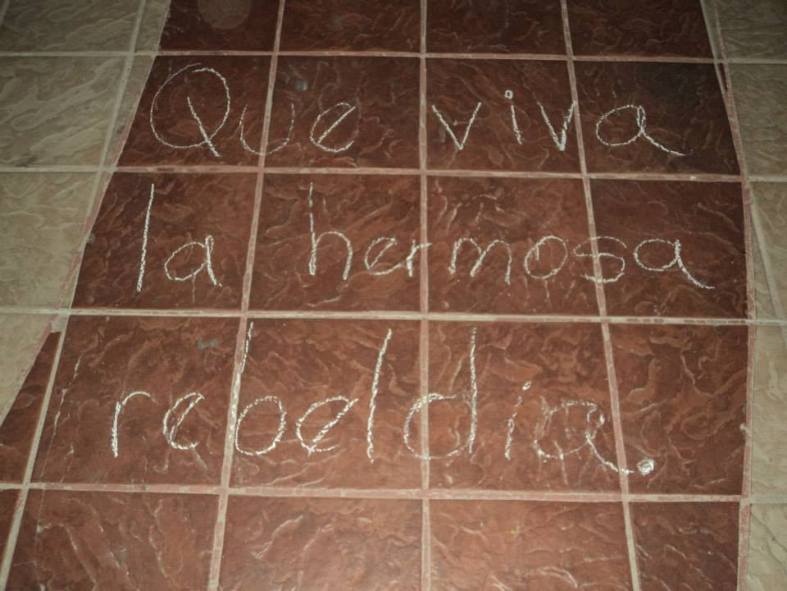 Que viva
la hermosa
rebeldia.